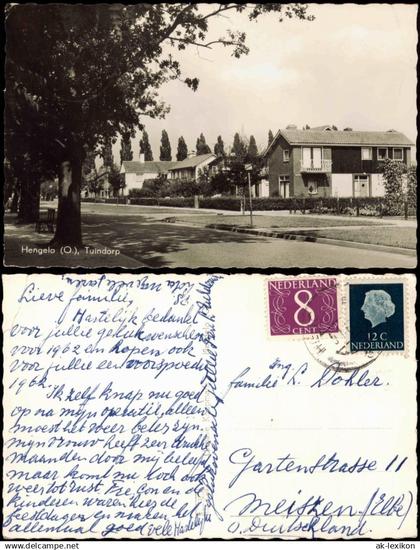 Hengelo (O.), Tuindorp
Lieve familie,
Hartelijk bedankt
voor jullie gelukwenschen
voor 1962 en hopen ook
voor jullie een voorspoedig
1962.
Ik zelf knap nu goed
op na mijn operatie, alleen
moest het weer beter zijn
mijn vrouw heeft een drukke
maanden door mij beleefd
maar komt nu toch ook
weer tot rust. De Zoon en de
kinderen waren hier de
feestdagen en maken het
allemaal goed
vele Hartelijke
NEDERLAND
8
CENT
12 C
NEDERLAND
Ing.
familie L. Dohler.
Gartenstrasse 11
Meiszen (Elbe)
O. Duitschland.
ak-lexikon
© ak-lexikon.com